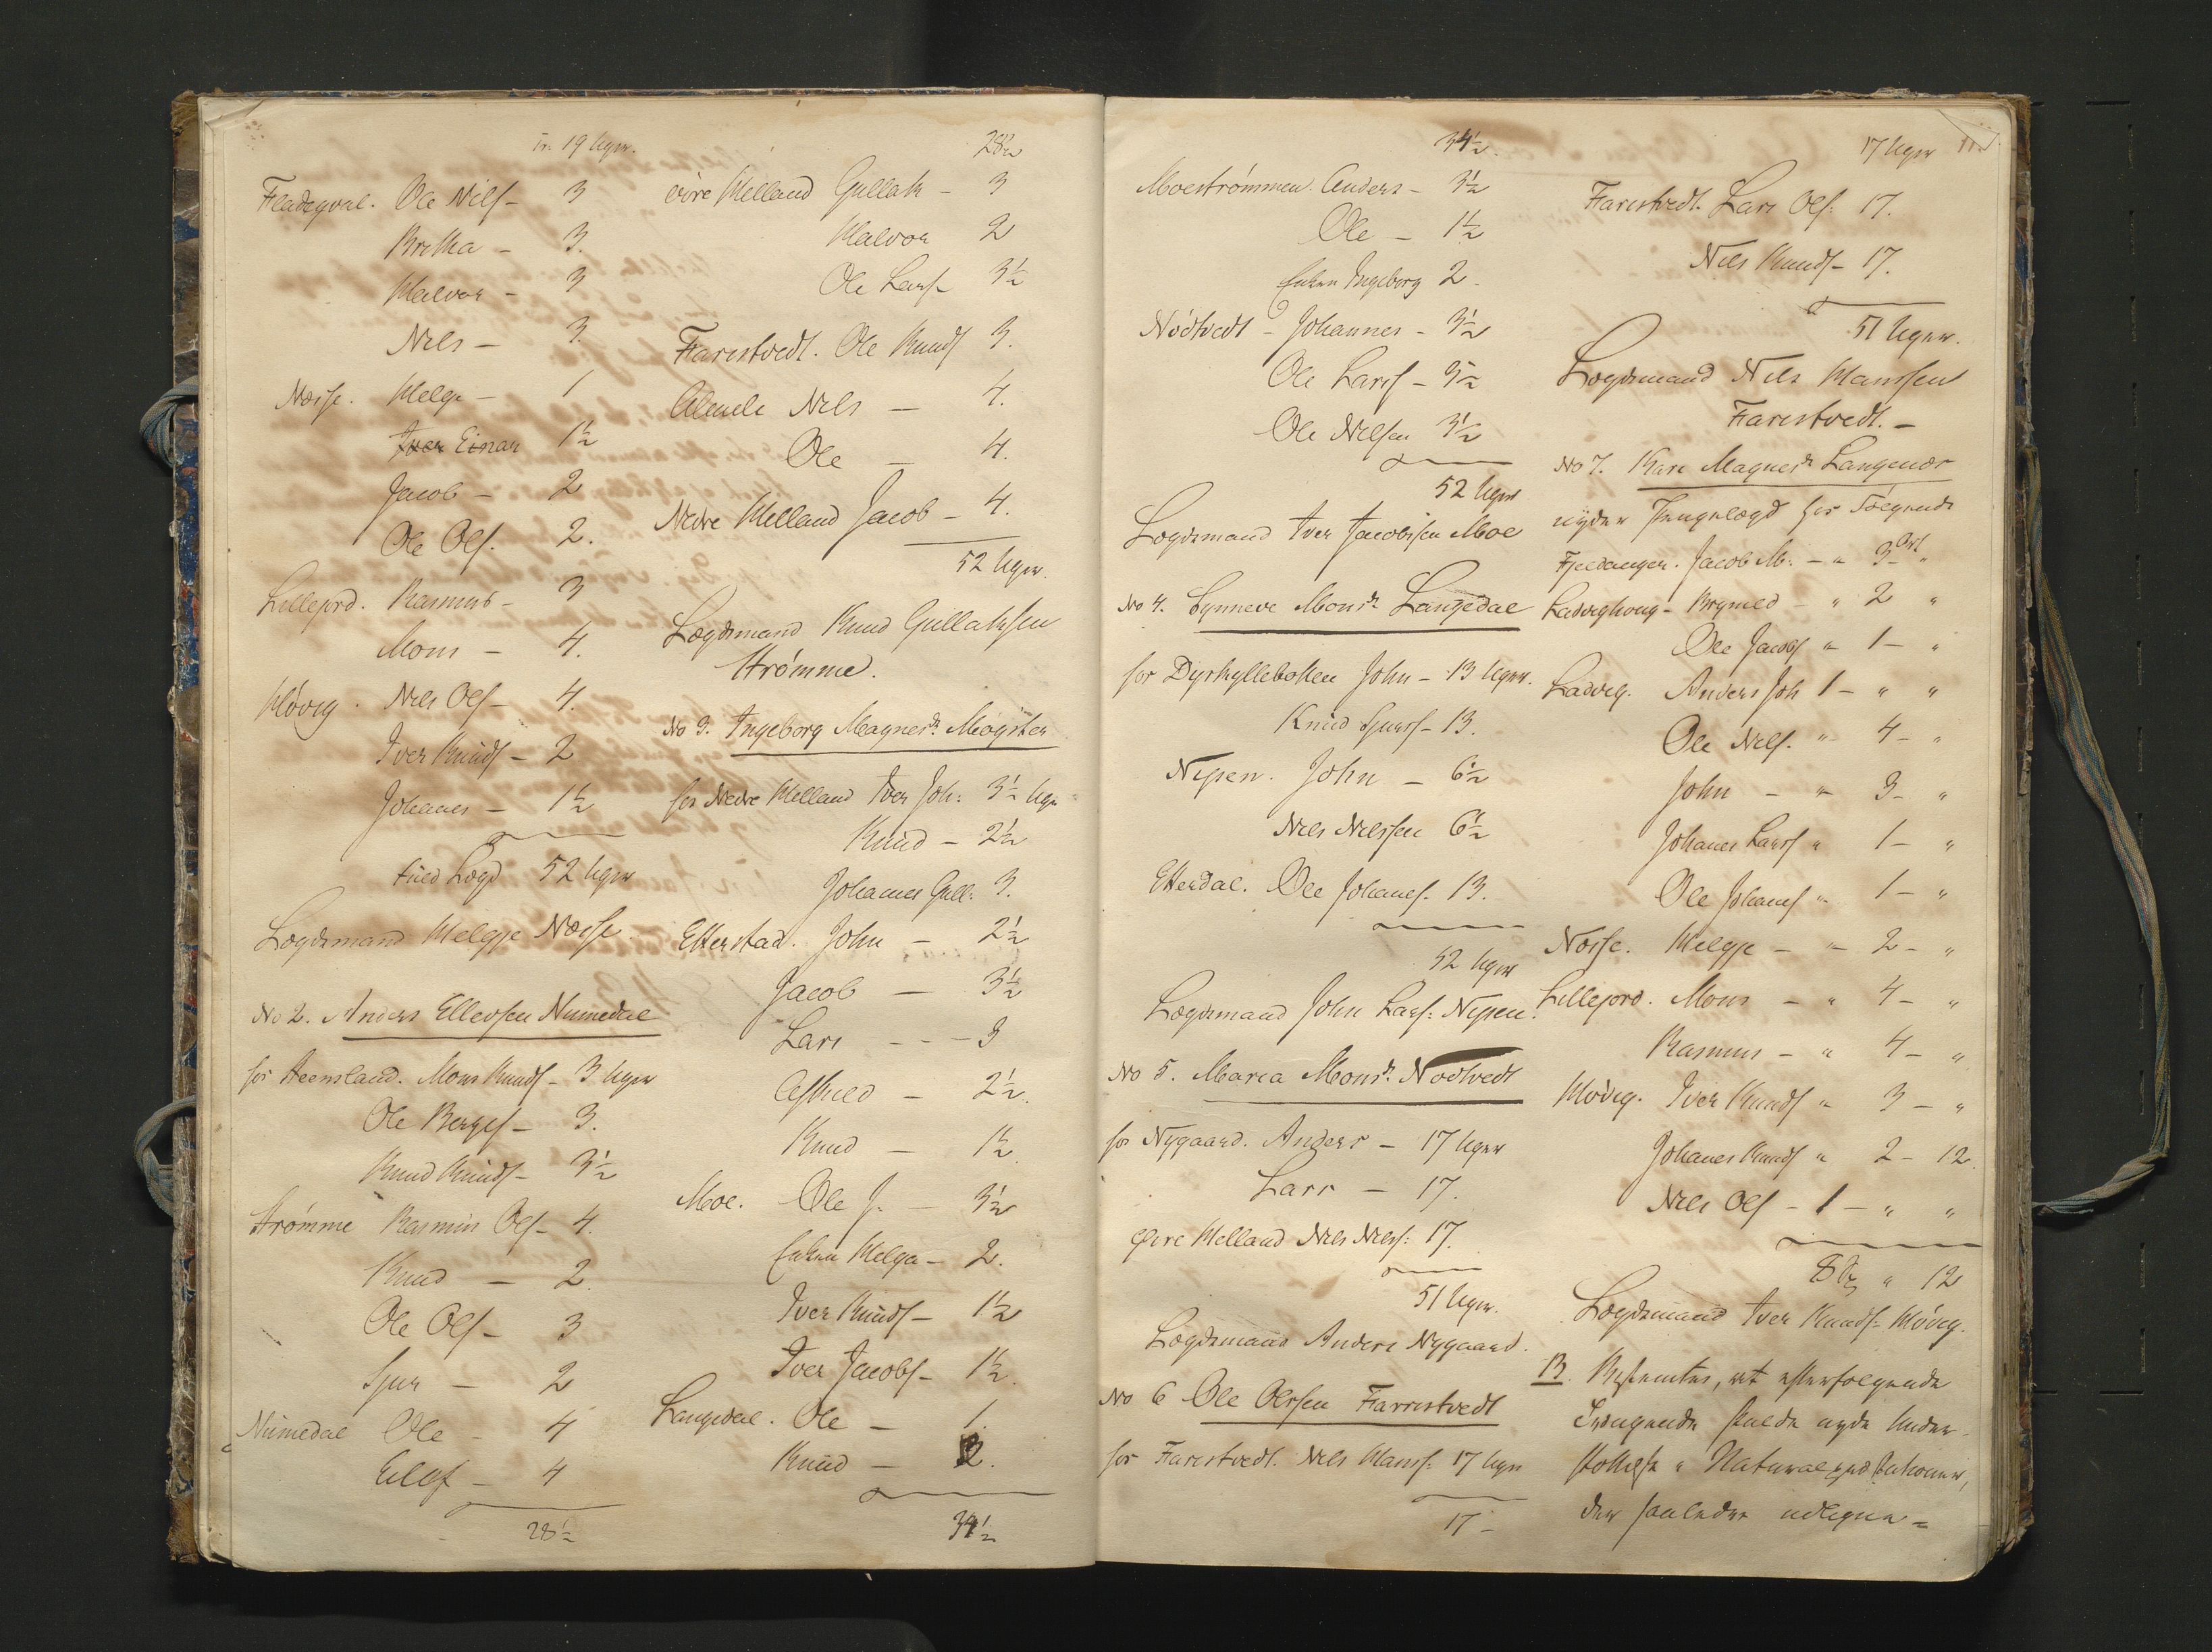 Tr. 19 Uger.
Fladeqval. Ole Nils- 3
Britha - 3.
Halvor - 3
Nils - 3.
Næsse. Helge - 1
Iver Einar 1½
Jacob - 2
Ole Ols. 2.
Lillejord. Rasmus - 3
Mons - 4.
Høvig. Nils Ols- 4.
Iver Knuds- 2
Johanes - 1½
fuld Lægd 52 Uger
Lægdsmand Helgje Næsse.
No 2. Anders Ellevsen Numedal
for Steensland. Mons Knuds- 3 Uger
Ole Berges- 3.
Knud Knuds- 3½
Strømme Rasmus Ols- 4.
Knud - 2.
Ole Ols- 3
Sjur - 2
Numedal Ole - 4
Ellef - 4
28½
28½
øvre Helland Gullak - 3
Halvor 2
Ole Lars- 3½
Farestvedt. Ole Knuds 3.
Nils - 4.
Ole - 4.
Nedre Helland Jacob - 4.
52 Uger.
Lægdsmand Knud Gullaksen
Strømme.
No 3. Ingeborg Magnesdr Møgster
for Nedre Helland Iver Joh: 3½ Uge
Knud - 2½
Johannes Gull: 3.
Etterstad. John - 2½
Jacob - 3½
Lars - - - 3
Askild - 2½.
Knud - 1½
Moe. Ole J. - 3½
Enken Helga - 2.
Iver Knuds- 1½
Iver Jacobs- 1½.
Langedal. Ole - 1.
Knud - 2.
34½
34½.
Moestrømmen. Anders - 3½
Ole - 1½
Enken Ingeborg 2.
Nødtvedt - Johannes - 3½
Ole Larss - 3½
Ole Nilsen 3½
52 Uger
Lægdsmand Iver Jacobsen Moe
No 4. Synneve Monsdr Langedal
for Dyrkolleboten John - 13 Uger.
Knud Sjurs- 13.
Nipen. John - 6½
Nils Nilssen 6½
Etterdal. Ole Johanes. 13.
52 Uger
Lægdsmand John Lars: Nipen.
No 5. Maria Monsdr Nødtvedt
for Nygaard. Anders - 17 Uger
Lars - 17.
Øvre Helland Nils Nils: 17.
51 Uger.
Lægdsmand Anders Nygaard.
No 6 Ole Olssen Farrestvedt
for Farestvedt. Nils Hans: 17 Uger
17 -
17 Uger
Farestvedt. Lars Ols. 17.
Nils Knuds- 17.
51 Uger.
Lægdsmand Nils Hanssen
Farestvedt. -
No 7. Kari Magnesdr Langenæs
nyder Pengelægd hos Følgende
Fjeldanger. Jacob M. - " 3 Ort "
Ladveghoug - Brynild - " 2 "
Ole Jacobs " 1 - "
Ladveg. Anders Joh 1 - " "
Ole Nils. " 4 - "
John - " 3 - "
Johanes Larss " 1 - "
Ole Johanes " 1 - "
Næsse. Helgje - " 2 - "
Lillejord. Mons - " 4 - "
Rasmus - " 4 - "
Høvig. Iver Knuds " 3 - "
Johanes Knuds " 2 - 12.
Nils Ols - 1 - " "
8 " 12
Lægdsmand Iver Knuds. Høvig.
B. Bestemtes, at efterfølgende
Trængende skulde nyde Under-
støttelse i Naturalpræstationer,
der saaledes udligne=